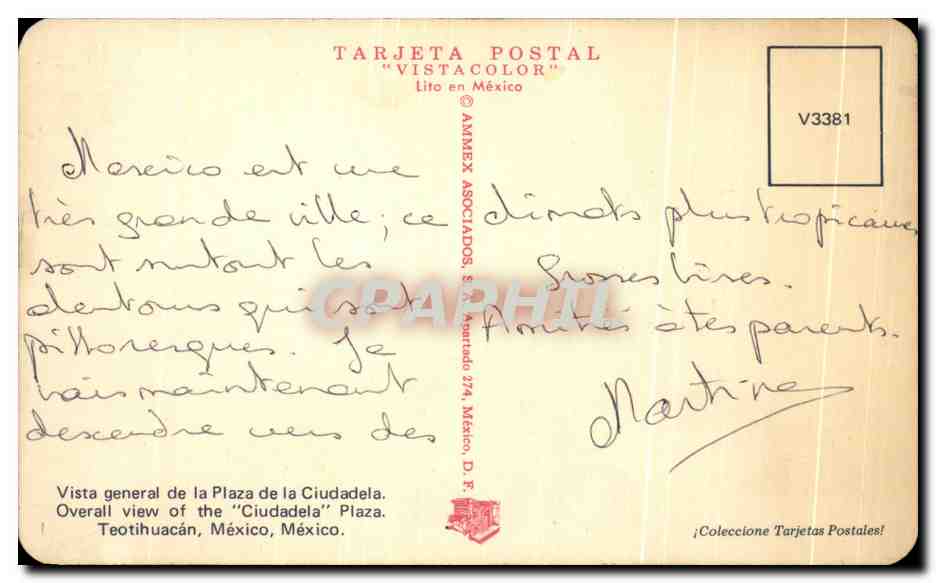 TARJETA POSTAL
"VISTACOLOR"
Lito en México
V3381
© AMMEX ASOCIADOS, S. A. Apartado 274, México, D. F.
Mexico est une
très grande ville; ce
sont surtout les
alentours qui sont
pittoresques. Je
vais maintenant
descendre vers des
climats plus tropicaux
Grosses bises.
Amitiés à tes parents.
Martine
CPAPHIL
Vista general de la Plaza de la Ciudadela.
Overall view of the "Ciudadela" Plaza.
Teotihuacán, México, México.
¡Coleccione Tarjetas Postales!